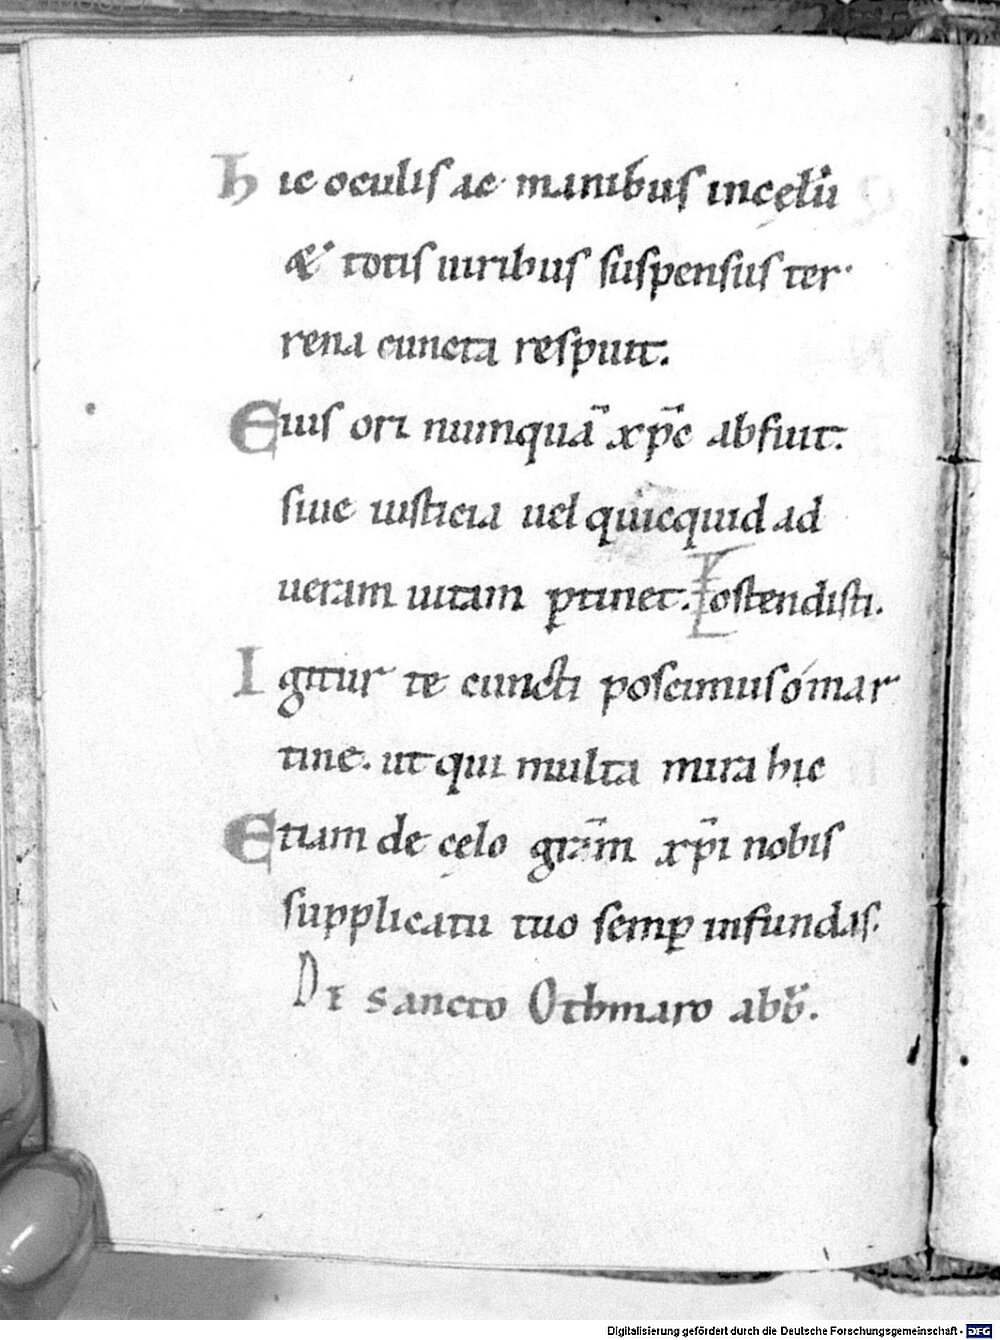 hic oculis ac manibus incęlū
& totis uiribus suspensus ter
rena cuncta respuit.
Eius ori numquā xp̄c abfuit.
siue iusticia uel quicquid ad
ueram uitam ꝑtinet. ostendisti.
Igitur te cuncti poscimus ó mar
tine. ut qui multa mira hic
Etiam de cęlo grām xp̄i nobis
supplicatu tuo semꝑ infundas.
De sancto Othmaro abb̄.
Digitalisierung gefördert durch die Deutsche Forschungsgemeinschaft - DFG